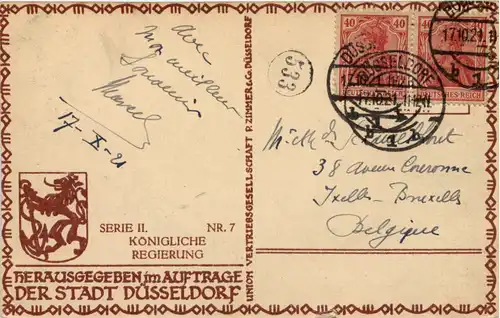 Avec
mon meilleur
Souvenir
17-X-21
533
40 40
DEUTSCHES REICH
DÜSSELDORF
17.10.21
Melle
38 Avenue Couronne
Ixelles - Bruxelles
Belgique
UNION VERTRIEBSGESELLSCHAFT P. ZIMMER & Co. DÜSSELDORF
SERIE II. NR. 7
KÖNIGLICHE
REGIERUNG
HERAUSGEGEBEN im AUFTRAGE
DER STADT DÜSSELDORF